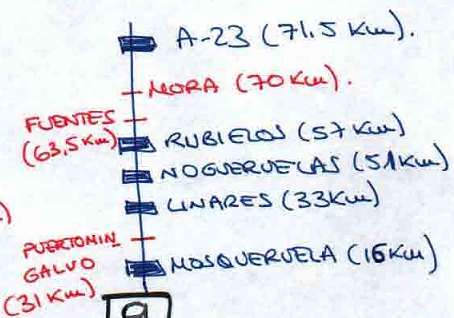 A-23 (71.5 Km).
MORA (70 Km).
FUENTES
(63,5 Km)
RUBIELOS (57 Km)
NOGUERUELAS (51 Km)
LINARES (33 Km)
PUERTOMIN
GALVO
(31 Km)
MOSQUERUELA (16 Km)
9